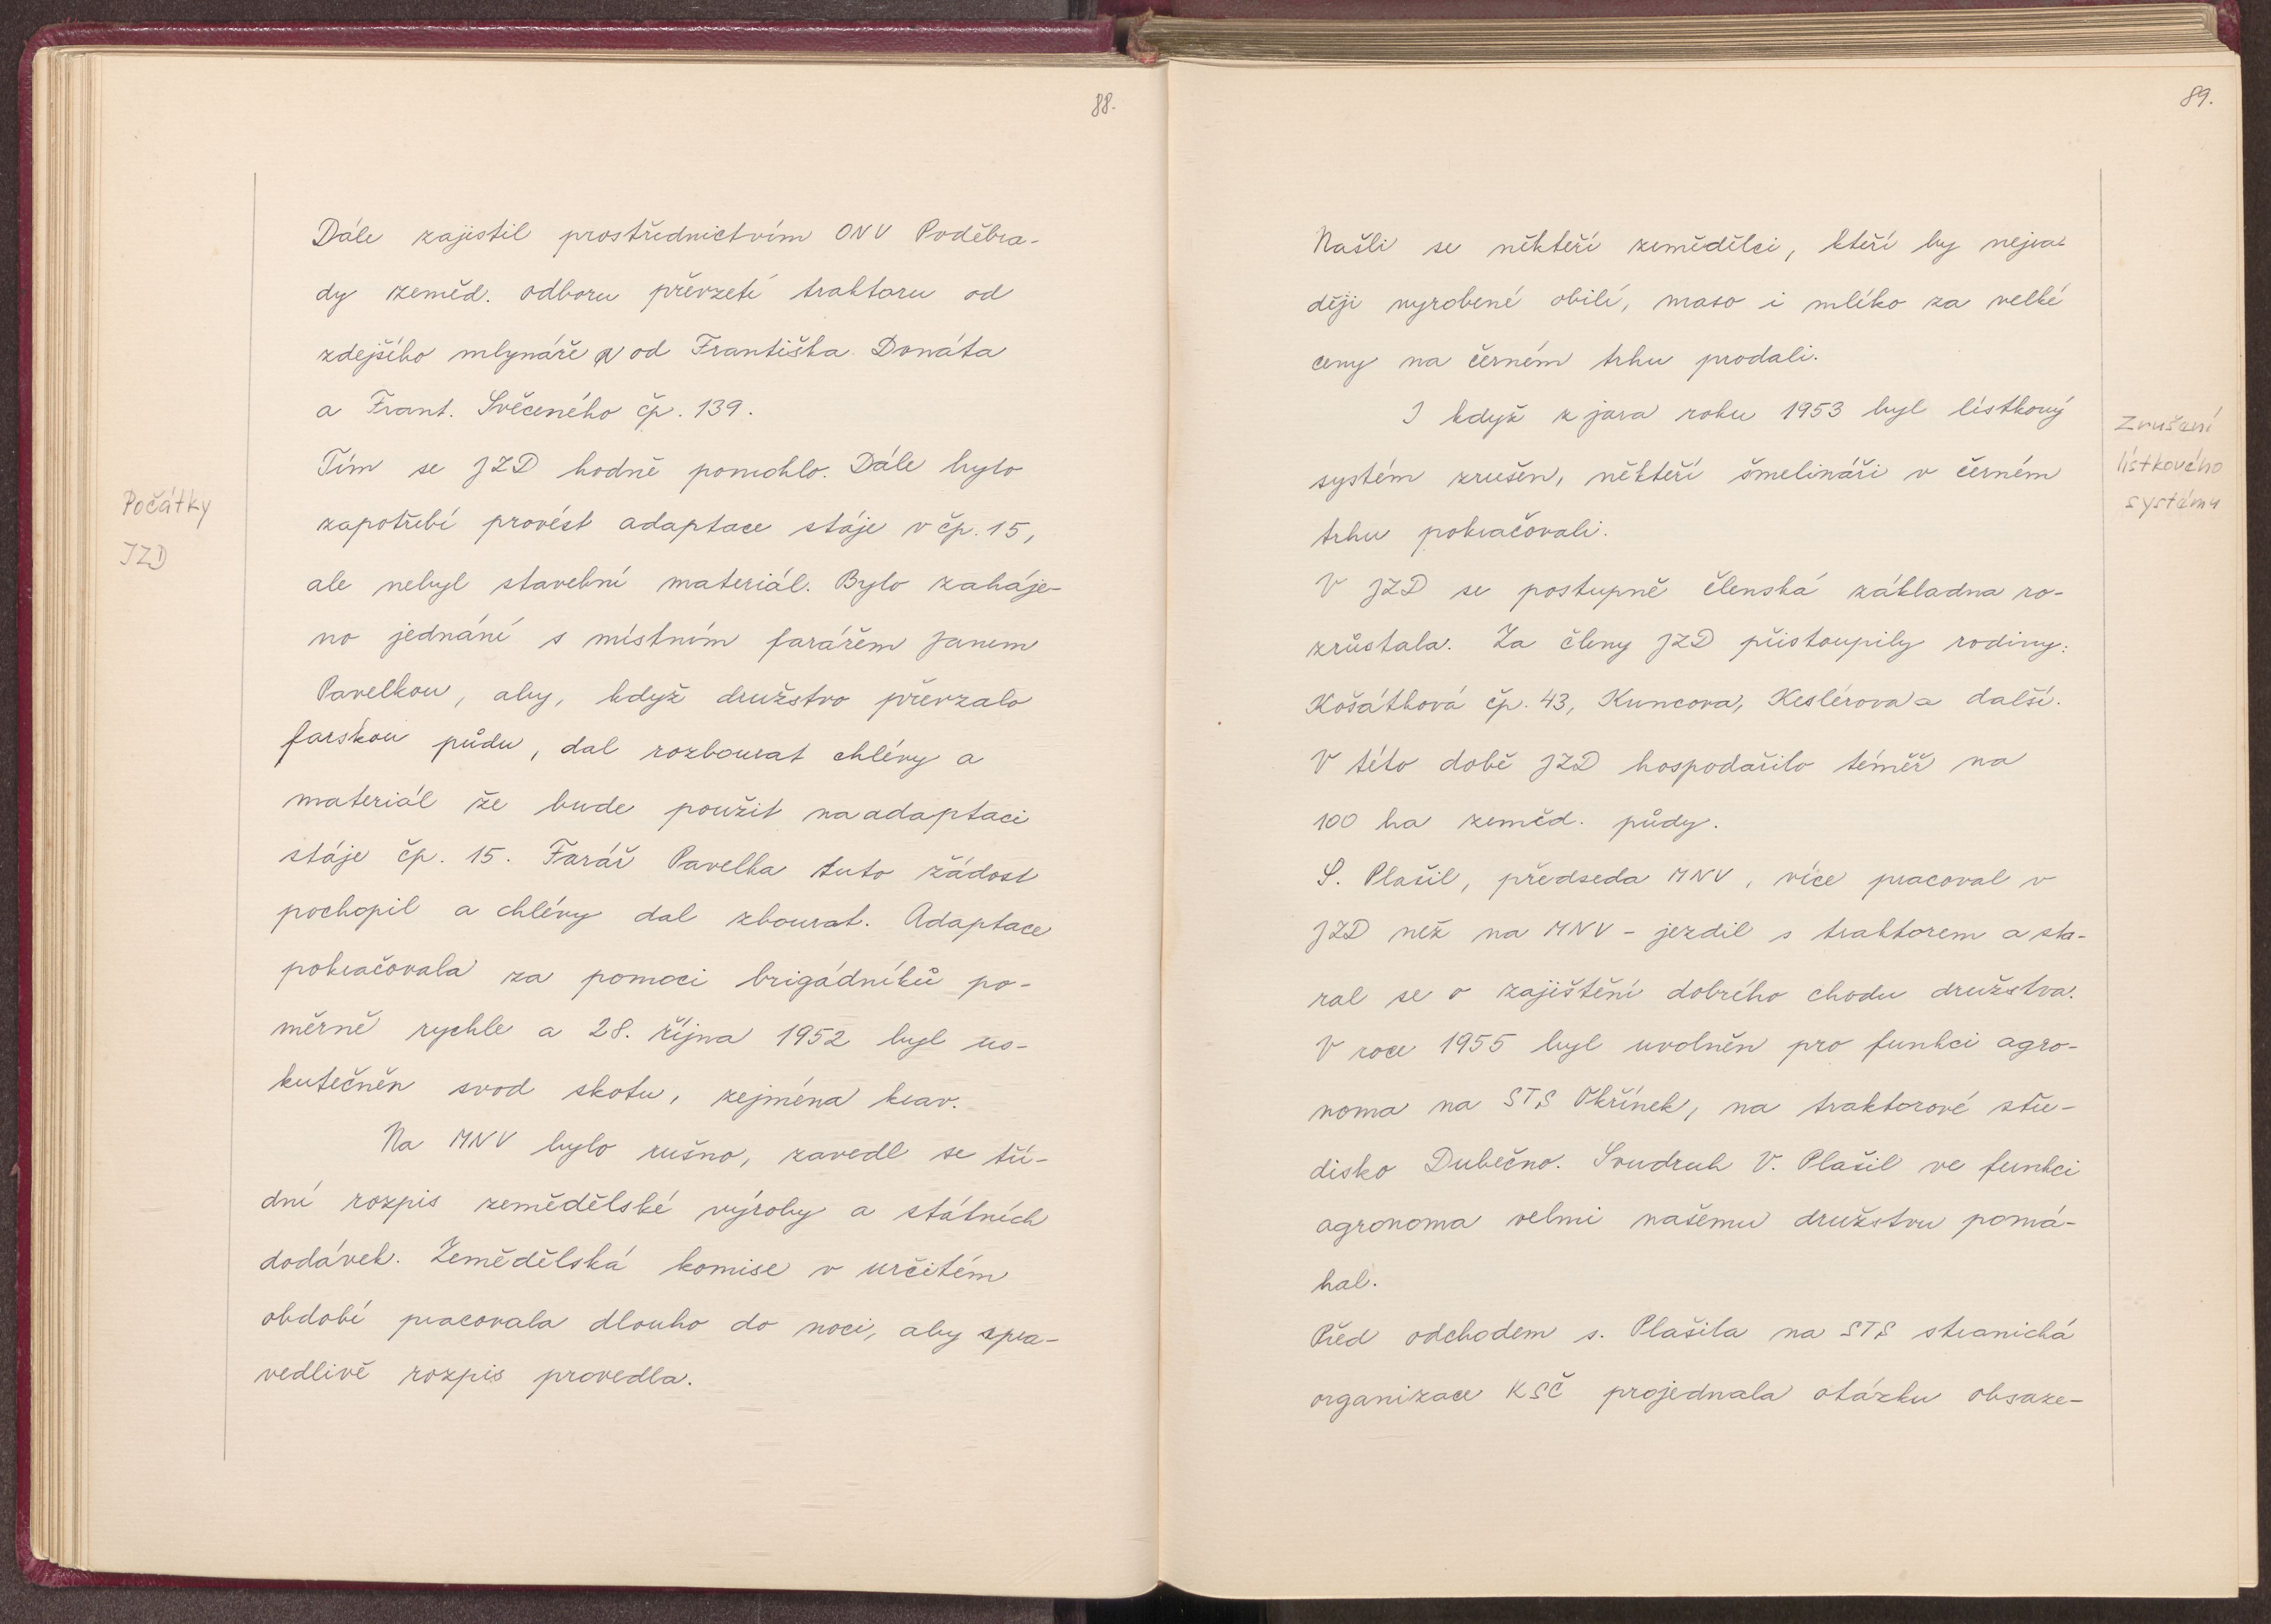 88.
Dále zajistil prostřednictvím ONV Poděbra-
dy zeměd. odboru převzetí traktoru od
zdejšího mlynáře a od Františka Donáta
a Frant. Svěceného čp. 139.
Tím se JZD hodně pomohlo. Dále bylo
zapotřebí provést adaptace stáje v čp. 15,
ale nebyl stavební materiál. Bylo zaháje-
no jednání s místním farářem Janem
Pavelkou, aby, když družstvo převzalo
farskou půdu, dal rozbourat chlévy a
materiál že bude použit na adaptaci
stáje čp. 15. Farář Pavelka tuto žádost
pochopil a chlévy dal zbourat. Adaptace
pokračovala za pomoci brigádníků po-
měrně rychle a 28. října 1952 byl us-
kutečněn svod skotu, zejména krav.
Na MNV bylo rušno, zavedl se tří-
dní rozpis zemědělské výroby a státních
dodávek. Zemědělská komise v určitém
období pracovala dlouho do noci, aby spra-
vedlivě rozpis provedla.
Počátky
JZD
89.
Našli se někteří zemědělci, kteří by nejra-
ději vyrobené obilí, maso i mléko za velké
ceny na černém trhu prodali.
I když z jara roku 1953 byl lístkový
systém zrušen, někteří šmelináři v černém
trhu pokračovali.
V JZD se postupně členská základna ro-
zrůstala. Za členy JZD přistoupily rodiny:
Košátková čp. 43, Kuncova, Keslérova a další.
V této době JZD hospodařilo téměř na
100 ha zeměd. půdy.
S. Plašil, předseda MNV, více pracoval v
JZD než na MNV - jezdil s traktorem a sta-
ral se o zajištění dobrého chodu družstva.
V roce 1955 byl uvolněn pro funkci agro-
noma na STS Okřínek, na traktorové stře-
disko Dubečno. Soudruh V. Plašil ve funkci
agronoma velmi našemu družstvu pomá-
hal.
Před odchodem s. Plašila na STS stranická
organizace KSČ projednala otázku obsaze-
Zrušení
lístkového
systému